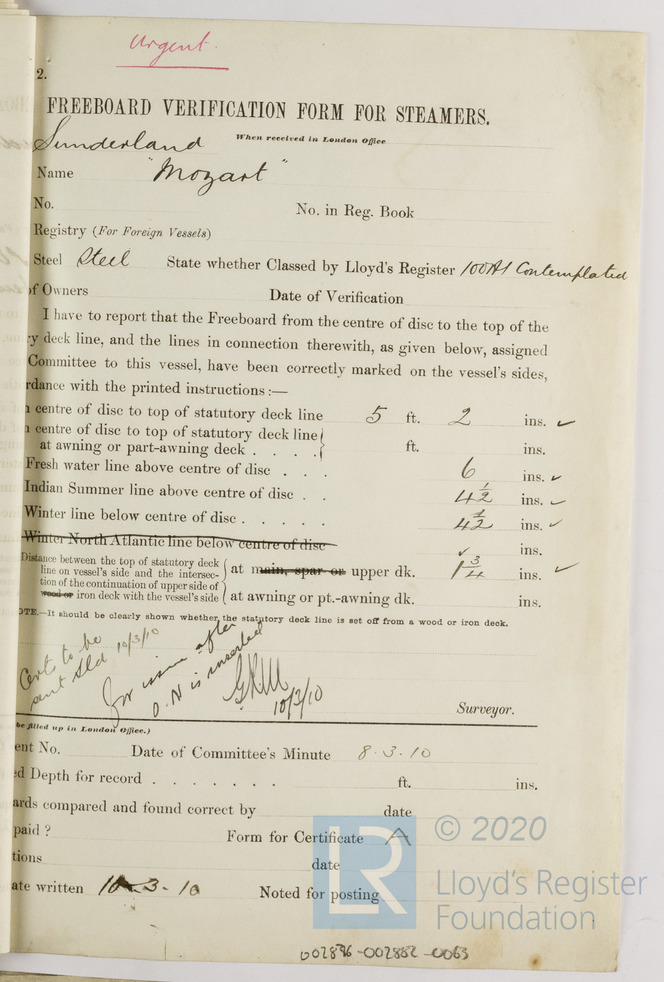 Urgent.
2.
FREEBOARD VERIFICATION FORM FOR STEAMERS.
Sunderland When received in London Office
Name "Mozart"
No. No. in Reg. Book
Registry (For Foreign Vessels)
Steel Steel State whether Classed by Lloyd's Register 100A1 Contemplated
of Owners Date of Verification
I have to report that the Freeboard from the centre of disc to the top of the
y deck line, and the lines in connection therewith, as given below, assigned
Committee to this vessel, have been correctly marked on the vessel's sides,
rdance with the printed instructions:—
centre of disc to top of statutory deck line 5 ft. 2 ins. ✓
centre of disc to top of statutory deck line
at awning or part-awning deck . . . . ft. ins.
Fresh water line above centre of disc . . . 6 ins. ✓
Indian Summer line above centre of disc . . 4½ ins. ✓
Winter line below centre of disc . . . . . 4½ ins. ✓
Winter North Atlantic line below centre of disc ✓ ins.
Distance between the top of statutory deck
line on vessel's side and the intersec-
tion of the continuation of upper side of
wood or iron deck with the vessel's side
at main, spar or upper dk. 1¾ ins. ✓
at awning or pt.-awning dk. ins.
OTE.—It should be clearly shown whether the statutory deck line is set off from a wood or iron deck.
Certs to be
sent Sld 10/3/10
for issue after
O.N is inserted
10/3/10
Surveyor.
be filled up in London Office.)
ent No. Date of Committee's Minute 8.3.10
ed Depth for record . . . . . . . ft. ins.
ards compared and found correct by date
paid ? Form for Certificate A
tions date
ate written 10-3-10 Noted for posting
LR
© 2020
Lloyd's Register
Foundation
002896-002882-0063